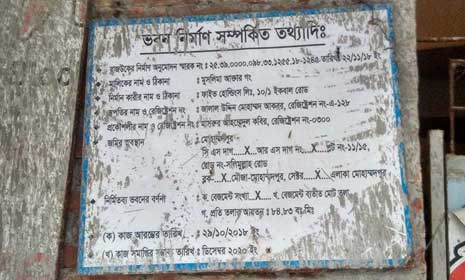 ভবন নির্মাণ সম্পর্কিত তথ্যাদিঃ
রাজউকের নির্মাণ অনুমোদন স্মারক নং : ২৫.৩৯.০০০০.০৯৮.৩৩.১২৫৫.১৮-১২৪৫ তারিখ ২২/১১/১৮ ইং
মালিকের নাম ও ঠিকানা : মুসলিমা আক্তার গং
নির্মান কারীর নাম ও ঠিকানা : ফাইভ হোল্ডিংস লিঃ, ১০/১ ইকবাল রোড
স্থপতির নাম ও রেজিষ্ট্রেশন নং : জালাল উদ্দিন মোহাম্মদ আকবর, রেজিষ্ট্রেশন নং-এ-১২৮
প্রকৌশলীর নাম ও রেজিষ্ট্রেশন নং : মাসরুর আহমেদুল কবির, রেজিষ্ট্রেশন নং-০৩০০
জমির অবস্থান : মোহাম্মদপুর
সি এস দাগ.....X...আর এস দাগ নং....X... প্লট নং-১১/১৫,
রোড নং-সলিমুল্লাহ রোড
ব্লক-...X...মৌজা-মোহাম্মদপুর, সেক্টর.....X...এলাকা মোহাম্মদপুর
নির্মিতব্য ভবনের বর্ণনা : ক. বেজমেন্ট সংখ্যা....X..... খ. বেজমেন্ট ব্যতীত মোট তলা
গ. প্রতি তলার আয়তন : ৮৪.৮৩ বঃমিঃ
(ক) কাজ আরম্ভের তারিখ : ২৯/১০/২০১৮ ইং
(খ) কাজ সমাপ্তির সম্ভাব্য তারিখ : ডিসেম্বর ২০২০ ইং